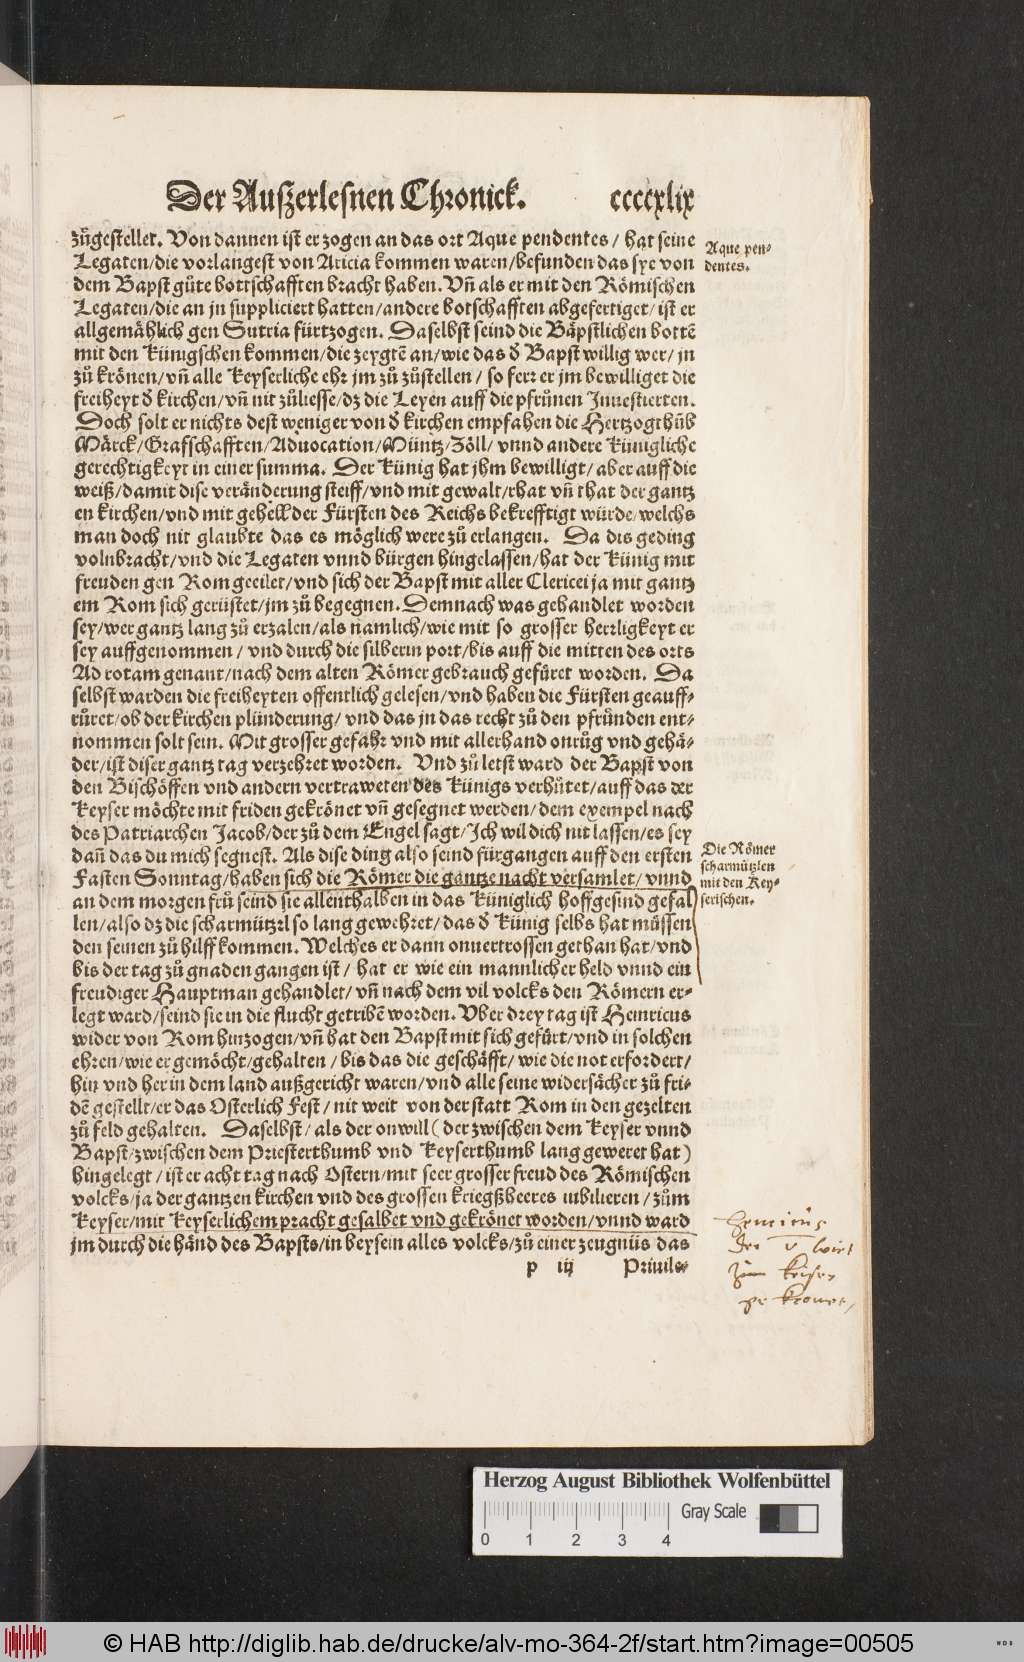 Der Auszerlesnen Chronick. ccccxlix
zůgestellet. Von dannen ist er zogen an das ort Aque pendentes / hat seine
Legaten/die vorlangest von Aricia kommen waren/befunden das sye von
dem Bapst gůte bottschafften bracht haben. Vñ als er mit den Römischen
Legaten/die an jn suppliciert hatten/andere botschafften abgefertiget/ist er
allgemählich gen Sutria fürtzogen. Daselbst seind die Bäpstlichen bottẽ
mit den Künigschen kommen/die zeygtẽ an/wie das d Bapst willig wer/ jn
zů krönen/vñ alle Keyserliche ehr jm zů zůstellen / so ferr er jm bewilliget die
freiheyt d kirchen/vñ nit zůliesse/dz die Leyen auff die pfrůnen Inuestierten.
Doch solt er nichts dest weniger von d kirchen empfahen die Hertzogthũb
Märck/Grafschafften/Aduocation/Müntz/Zöll/ vnnd andere Künigliche
gerechtigkeyt in einer summa. Der Künig hat jhm bewilligt/aber auff die
weiß/damit dise veränderung steiff/vnd mit gewalt/rhat vñ that der gantz
en kirchen/vnd mit gehell der Fürsten des Reichs bekrefftigt würde/welchs
man doch nit glaubte das es möglich were zů erlangen. Da dis geding
volnbracht/vnd die Legaten vnnd bürgen hingelassen/hat der Künig mit
freuden gen Rom geeilet/vnd sich der Bapst mit aller Clericei ja mit gantz
em Rom sich gerüstet/jm zů begegnen. Demnach was gehandlet worden
sey/wer gantz lang zů erzalen/als namlich/wie mit so grosser herrligkeyt er
sey auffgenommen / vnd durch die silberin port/bis auff die mitten des orts
Ad rotam genant/nach dem alten Römer gebrauch gefůret worden. Da
selbst warden die freiheyten offentlich gelesen/vnd haben die Fürsten geauff-
růret/ob der kirchen plünderung/ vnd das jn das recht zů den pfrůnden ent-
nommen solt sein. Mit grosser gefahr vnd mit allerhand onrůg vnd gehä-
der/ist diser gantz tag verzehret worden. Vnd zů letst ward der Bapst von
den Bischöffen vnd andern vertraweten des Künigs verhůtet/auff das der
Keyser möchte mit friden gekrönet vñ gesegnet werden/dem exempel nach
des Patriarchen Jacob/der zů dem Engel sagt/Ich wil dich nit lassen/es sey
dañ das du mich segnest. Als dise ding also seind fürgangen auff den ersten
Fasten Sonntag/haben sich die Römer die gantze nacht versamlet/vnnd
an dem morgen frů seind sie allenthalben in das Küniglich hoffgesind gefal
len/also dz die scharmützel so lang gewehret/das d Künig selbs hat můssen
den seinen zů hilff kommen. Welches er dann onuertrossen gethan hat/vnd
bis der tag zů gnaden gangen ist / hat er wie ein mannlicher held vnnd ein
freudiger Hauptman gehandlet/ vñ nach dem vil volcks den Römern er-
legt ward/seind sie in die flucht getribẽ worden. Vber drey tag ist Heinricus
wider von Rom hinzogen/vñ hat den Bapst mit sich gefürt/vnd in solchen
ehren/wie er gemöcht/gehalten / bis das die geschäfft/ wie die not erfordert/
hin vnd her in dem land außgericht waren/vnd alle seine widersächer zů fri-
dẽ gestellt/er das Osterlich Fest / nit weit von der statt Rom in den gezelten
zů feld gehalten. Daselbst/ als der onwill ( der zwischen dem Keyser vnnd
Bapst/zwischen dem Priesterthumb vnd Keyserthumb lang geweret hat )
hingelegt / ist er acht tag nach Ostern/mit seer grosser freud des Römischen
volcks/ja der gantzen kirchen vnd des grossen kriegßheeres iubilieren / zům
Keyser/mit Keyserlichem pracht gesalbet vnd gekrönet worden/vnnd ward
jm durch die händ des Bapsts/in beysein alles volcks/zů einer zeugnüs das
p iij Priuile-
Aque pen-
dentes.
Die Römer
scharmützlen
mit den Key-
serischen.
Henricus
der v wirt
zum Keiser
gekronet
Herzog August Bibliothek Wolfenbüttel
Gray Scale
0 1 2 3 4
© HAB http://diglib.hab.de/drucke/alv-mo-364-2f/start.htm?image=00505